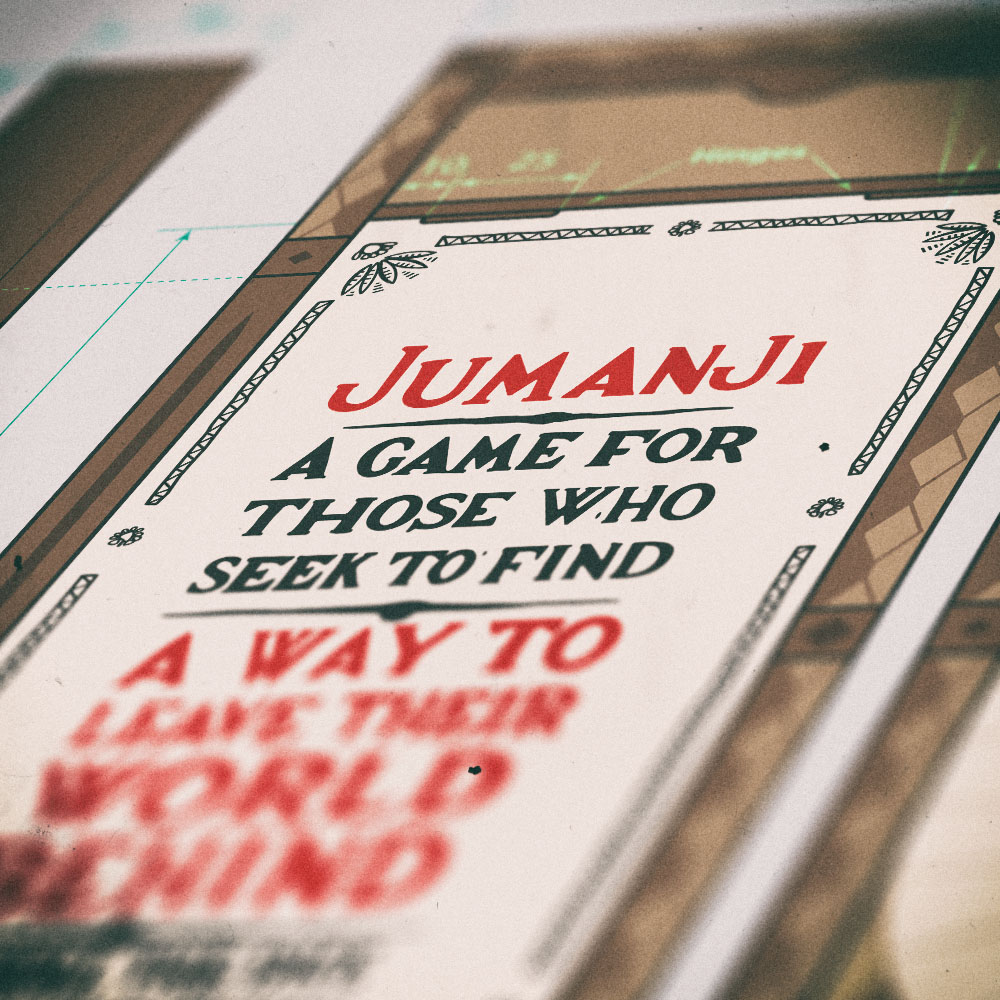 18 23 Hinges
JUMANJI
A GAME FOR
THOSE WHO
SEEK TO FIND
A WAY TO
LEAVE THEIR
WORLD
BEHIND